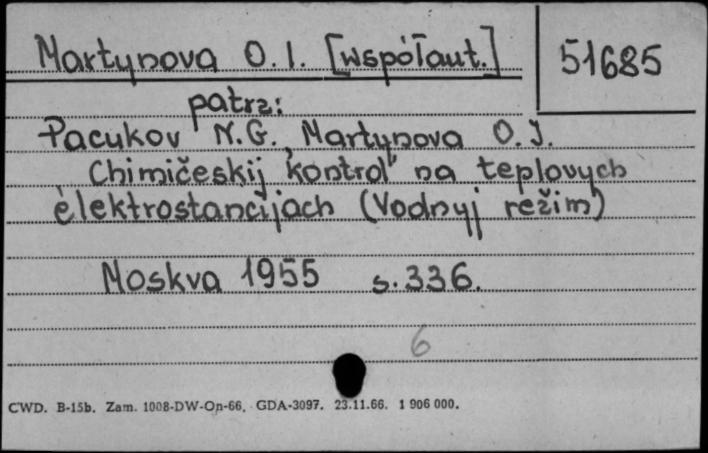 Martynova O. I. [współaut.]
51685
patrz:
Pacukov N.G., Martynova O.I.
Chimičeskij kontrol' na teplovych
èlektrostancijach (Vodnyj režim)
Moskva 1955 s. 336.
6
CWD. B-15b. Zam. 1008-DW-Op-66. GDA-3097. 23.11.66. 1 906 000.